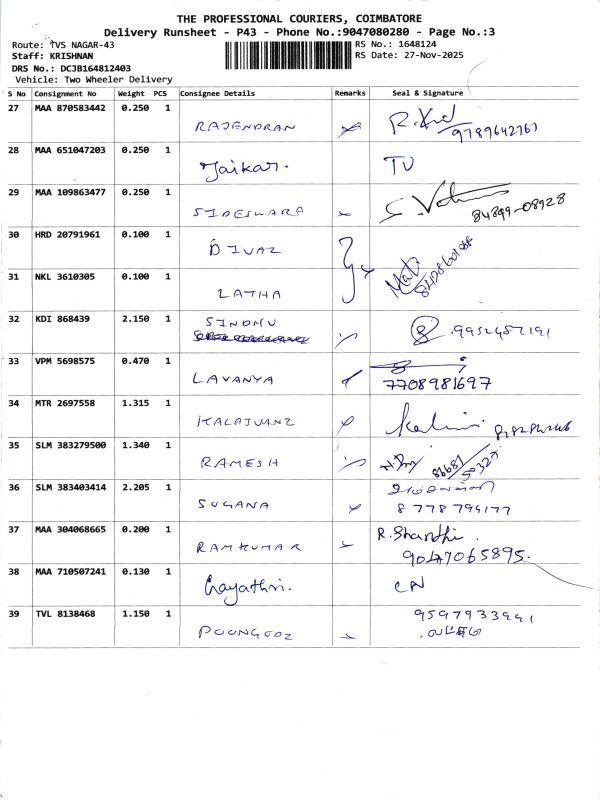 THE PROFESSIONAL COURIERS, COIMBATORE
Delivery Runsheet - P43 - Phone No.:9047080280 - Page No.:3
Route: TVS NAGAR-43
Staff: KRISHNAN
DRS No.: DCJB164812403
Vehicle: Two Wheeler Delivery
RS No.: 1648124
RS Date: 27-Nov-2025
S No Consignment No Weight PCS Consignee Details Remarks Seal & Signature
27 MAA 870583442 0.250 1 RAJENDRAN 9789642767
28 MAA 651047203 0.250 1 Jaikar. TV
29 MAA 109863477 0.250 1 SIDESWARA 84899-08928
30 HRD 20791961 0.100 1 DIVAZ
31 NKL 3610305 0.100 1 LATHA
32 KDI 868439 2.150 1 SINDHU 9952487191
33 VPM 5698575 0.470 1 LAVANYA 7708981697
34 MTR 2697558 1.315 1 KALAIVANZ
35 SLM 383279500 1.340 1 RAMESH
36 SLM 383403414 2.205 1 SUGANA 8778794177
37 MAA 304068665 0.200 1 RAMKUMAR R. Shandhi 9047065895.
38 MAA 710507241 0.130 1 Gayathri. CN
39 TVL 8138468 1.150 1 POONGODZ 9597933991